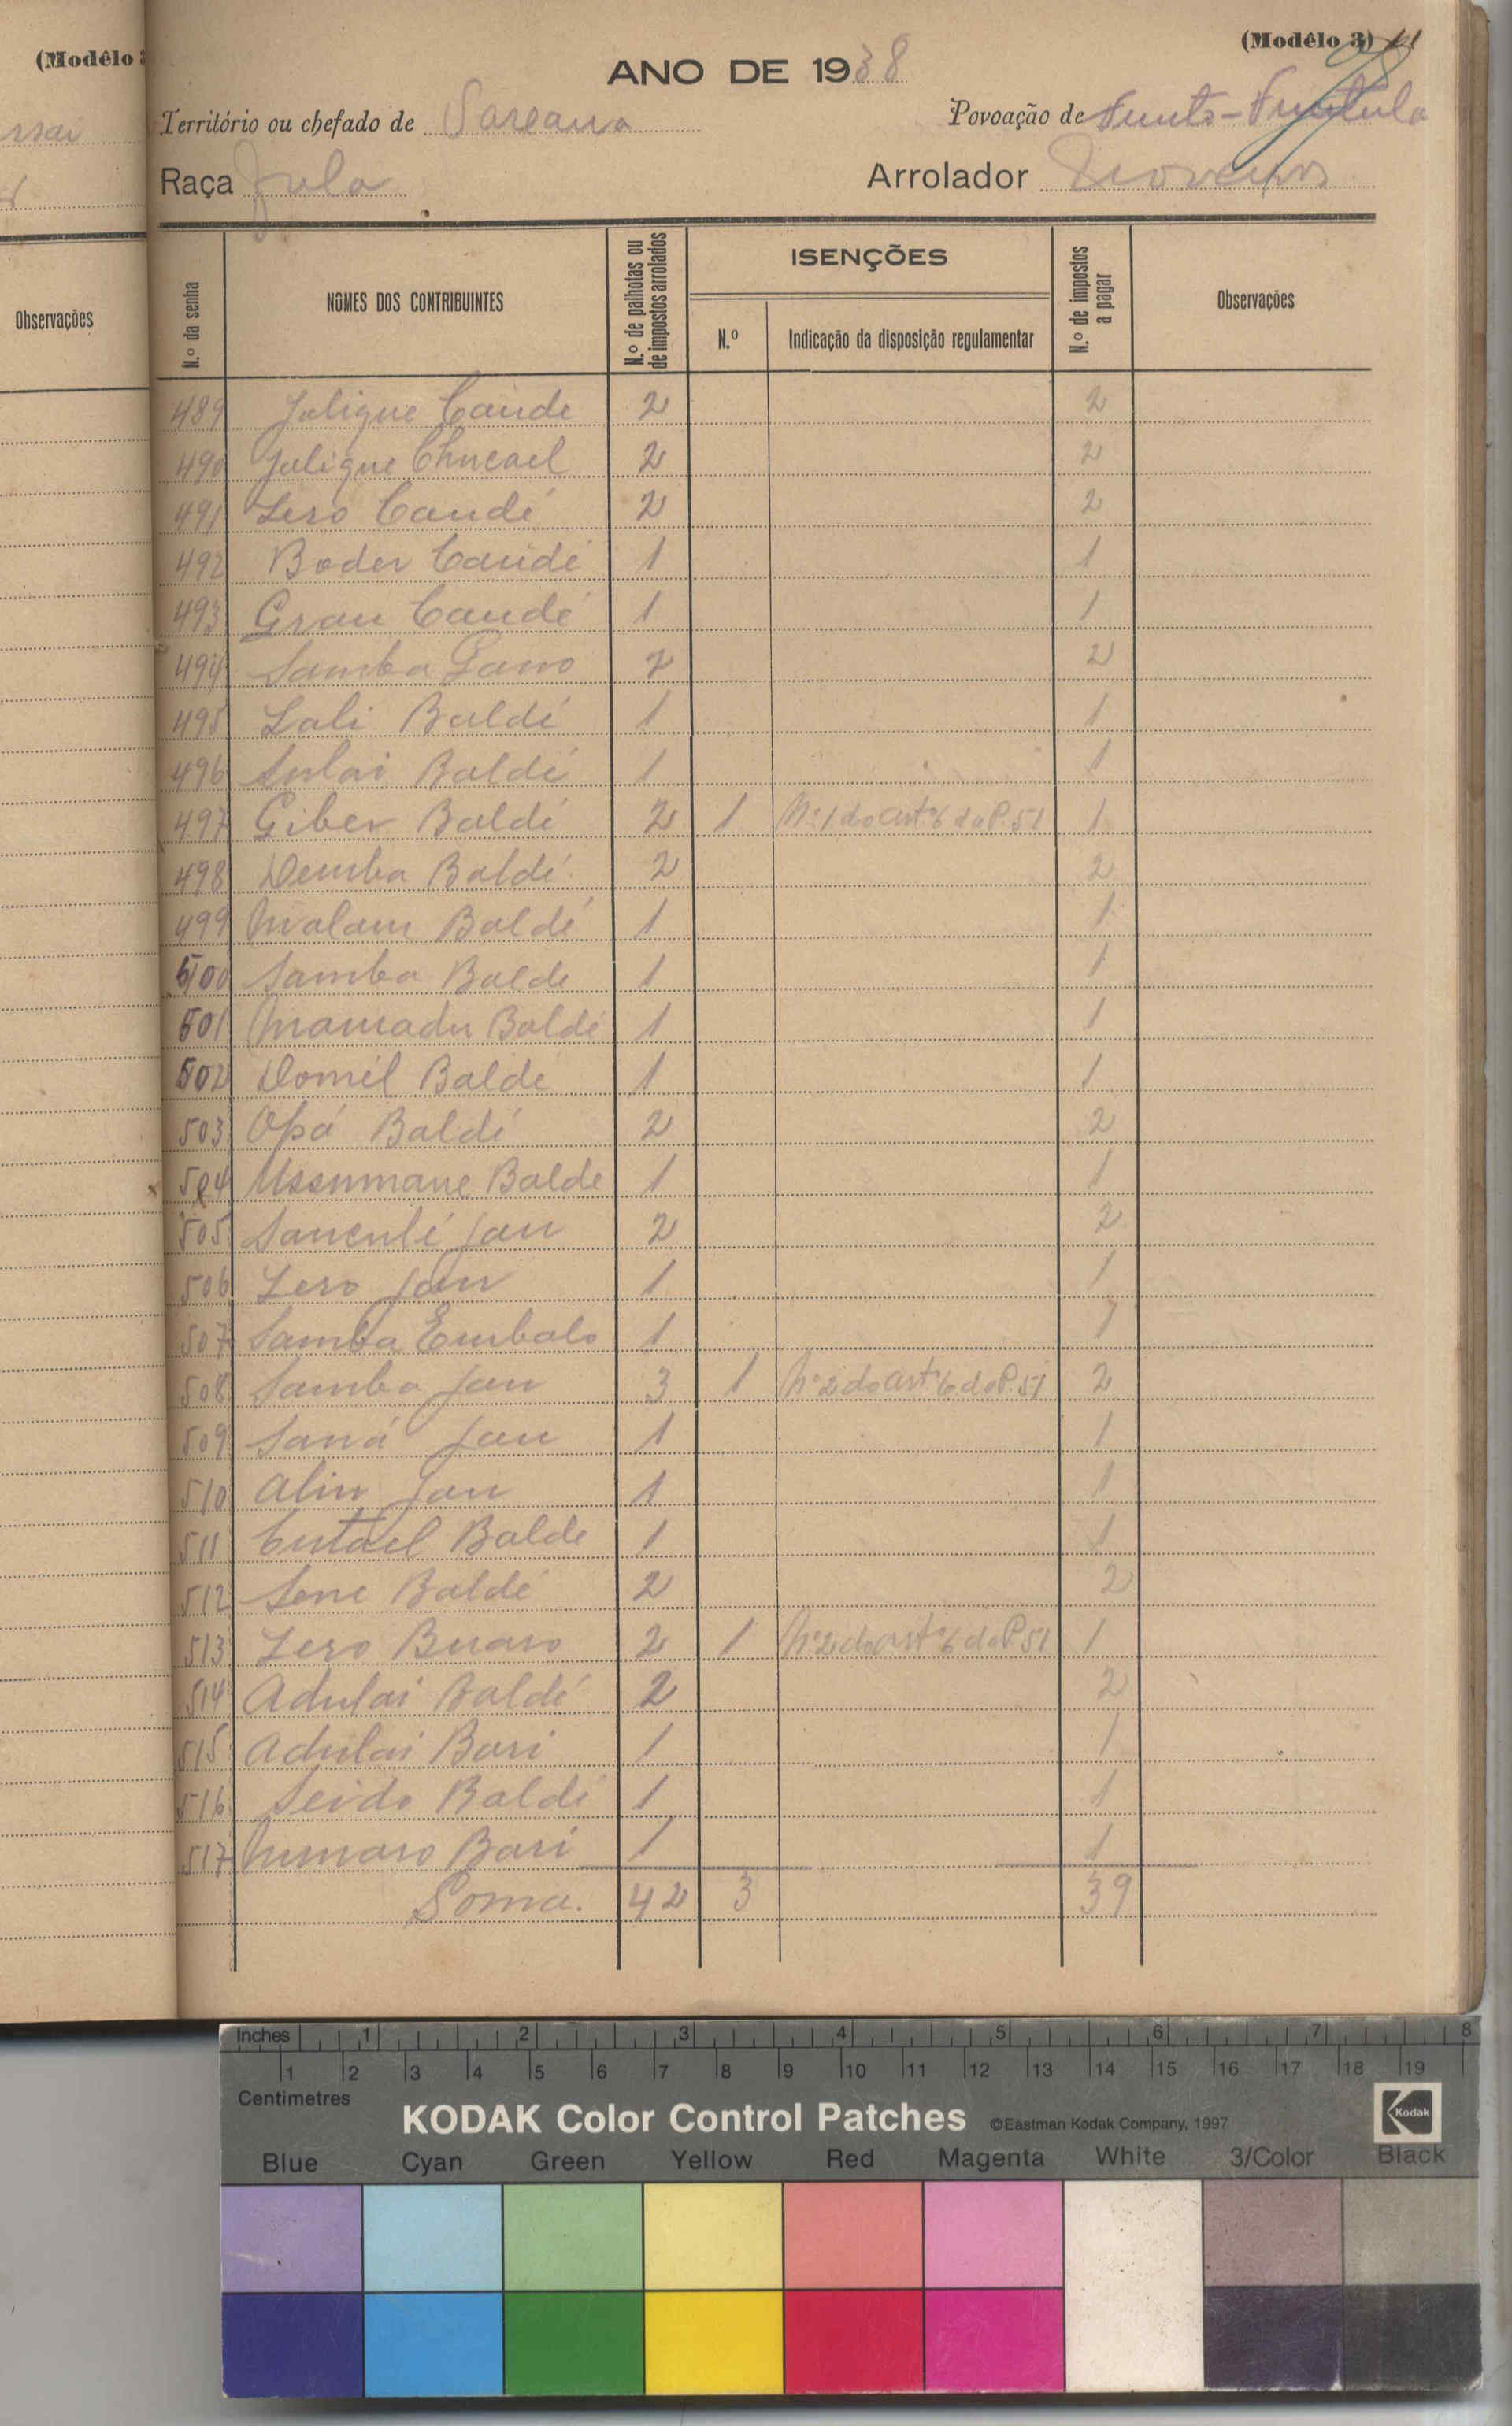 (Modêlo
Observações
(Modêlo 3) 11
ANO DE 1938
Território ou chefado de Sareana Povoação de
Raça Fula Arrolador
N.º da senha NOMES DOS CONTRIBUINTES N.º de palhotas ou de impostos arrolados ISENÇÕES N.º de impostos a pagar Observações
N.º Indicação da disposição regulamentar
489 Jaligue Candé 2 2
490 Jaligue 2 2
491 Lero Candé 2 2
492 Boder Candé 1 1
493 Grau Candé 1 1
494 Samba Gano 2 2
495 Lali Baldé 1 1
496 Sulai Baldé 1 1
497 Giber Baldé 2 1 Nº 1 do artº 6 do P. 51 1
498 Demba Baldé 2 2
499 Malam Baldé 1 1
500 Samba Balde 1 1
501 Mamadu Baldé 1 1
502 Domél Baldé 1 1
503 Opá Baldé 2 2
504 Ussumane Balde 1 1
505 Sanculé Jau 2 2
506 Lero Jau 1 1
507 Samba Embalo 1 1
508 Samba Jau 3 1 Nº 2 do artº 6 do P. 51 2
509 Saná Jau 1 1
510 Aliu Jau 1 1
511 Cutael Balde 1 1
512 Sene Baldé 2 2
513 Lero Buaro 2 1 Nº 2 do artº 6 do P. 51 1
514 Adulai Baldé 2 2
515 Adulai Bari 1 1
516 Seido Baldé 1 1
517 Numaro Bari 1 1
Soma. 42 3 39
Inches 1 2 3 4 5 6 7 8
1 2 3 4 5 6 7 8 9 10 11 12 13 14 15 16 17 18 19
Centimetres
KODAK Color Control Patches ©Eastman Kodak Company, 1997 Kodak
Blue Cyan Green Yellow Red Magenta White 3/Color Black